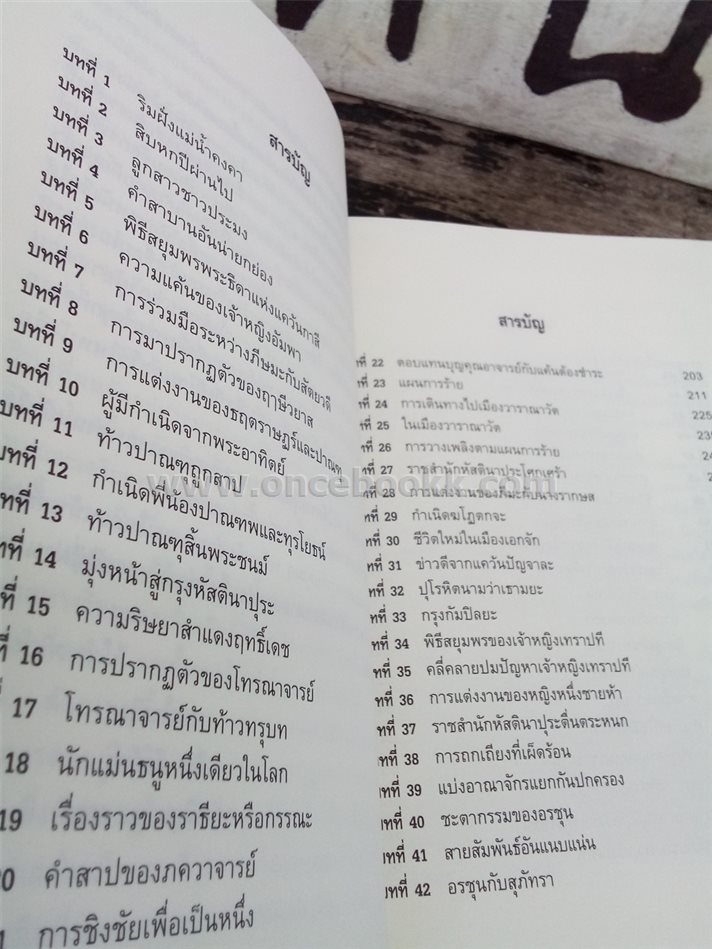 สารบัญ
บทที่ 1 ริมฝั่งแม่น้ำคงคา
บทที่ 2 สิบหกปีผ่านไป
บทที่ 3 ลูกสาวชาวประมง
บทที่ 4 คำสาบานอันน่ายกย่อง
บทที่ 5 พิธีสยุมพรพระธิดาแห่งแคว้นกาสี
บทที่ 6 ความแค้นของเจ้าหญิงอัมพา
บทที่ 7 การร่วมมือระหว่างภีษมะกับสัตยวดี
บทที่ 8 การมาปรากฏตัวของฤาษีวยาส
บทที่ 9 การแต่งงานของธฤตราษฎร์และปาณฑุ
บทที่ 10 ผู้มีกำเนิดจากพระอาทิตย์
บทที่ 11 ท้าวปาณฑุถูกสาป
บทที่ 12 กำเนิดพี่น้องปาณฑพและทุรโยธน์
ทที่ 13 ท้าวปาณฑุสิ้นพระชนม์
ทที่ 14 มุ่งหน้าสู่กรุงหัสตินาปุระ
ที่ 15 ความริษยาสำแดงฤทธิ์เดช
ที่ 16 การปรากฏตัวของโทรณาจารย์
17 โทรณาจารย์กับท้าวทรุบท
18 นักแม่นธนูหนึ่งเดียวในโลก
19 เรื่องราวของราธียะหรือกรรณะ
0 คำสาปของภควาจารย์
1 การชิงชัยเพื่อเป็นหนึ่ง
สารบัญ
ทที่ 22 ตอบแทนบุญคุณอาจารย์กับแค้นต้องชำระ 203
ทที่ 23 แผนการร้าย 211
ทที่ 24 การเดินทางไปเมืองวาราณาวัต 225
ทที่ 25 ในเมืองวาราณาวัต
ทที่ 26 การวางเพลิงตามแผนการร้าย
ทที่ 27 ราชสำนักหัสตินาปุระโศกเศร้า
ที่ 28 การแต่งงานของภีมะกับนางรากษส
ทที่ 29 กำเนิดฆโฏตกจะ
ทที่ 30 ชีวิตใหม่ในเมืองเอกจัก
ทที่ 31 ข่าวดีจากแคว้นปัญจาละ
ทที่ 32 ปุโรหิตนามว่าเธามยะ
ทที่ 33 กรุงกัมปิลยะ
ทที่ 34 พิธีสยุมพรของเจ้าหญิงเทราปที
ทที่ 35 คลี่คลายปมปัญหาเจ้าหญิงเทราปที
ทที่ 36 การแต่งงานของหญิงหนึ่งชายห้า
ทที่ 37 ราชสำนักหัสตินาปุระตื่นตระหนก
ทที่ 38 การถกเถียงที่เผ็ดร้อน
ทที่ 39 แบ่งอาณาจักรแยกกันปกครอง
ทที่ 40 ชะตากรรมของอรชุน
บทที่ 41 สายสัมพันธ์อันแนบแน่น
บทที่ 42 อรชุนกับสุภัทรา
www.oncebookk.com